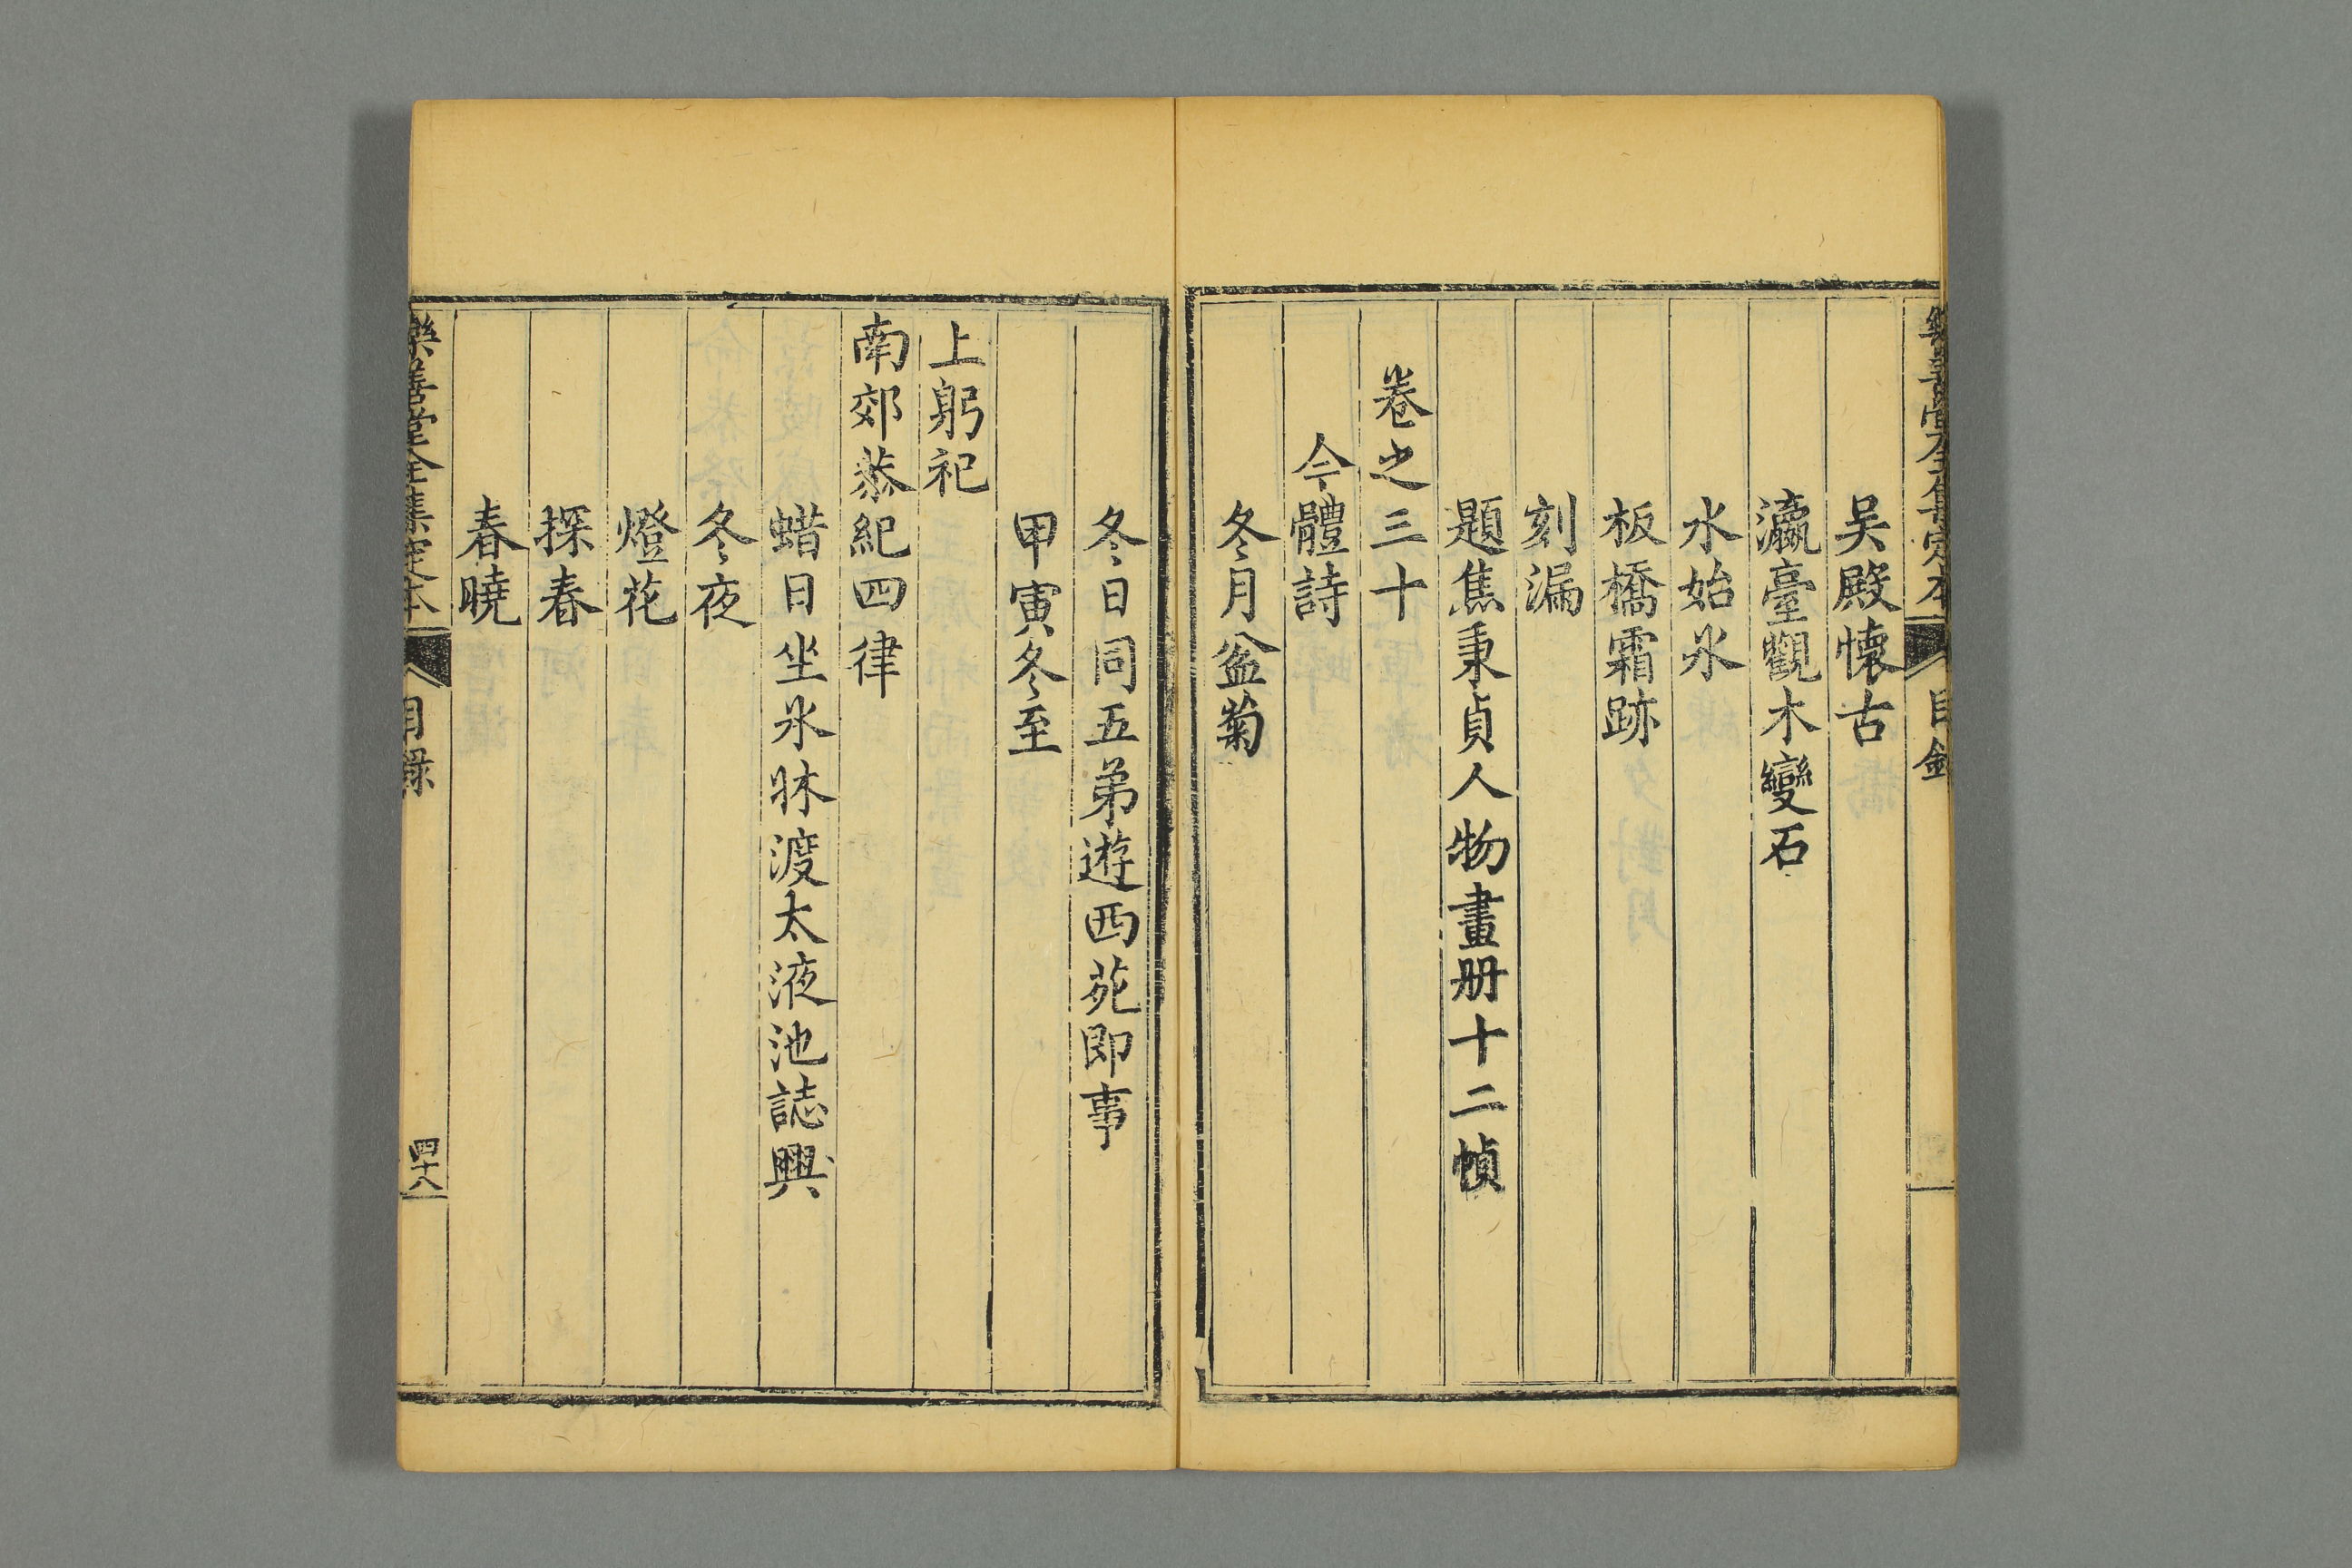 樂善堂全集定本
目錄
吴殿懷古
瀛臺觀木變石
水始氷
板橋霜跡
刻漏
題焦秉貞人物畫册十二幀
卷之三十
今體詩
冬月盆菊
冬日同五弟遊西苑即事
甲寅冬至
上躬祀
南郊恭紀四律
蜡日坐氷牀渡太液池誌興
冬夜
燈花
探春
春曉
樂善堂全集定本
目錄
四十八